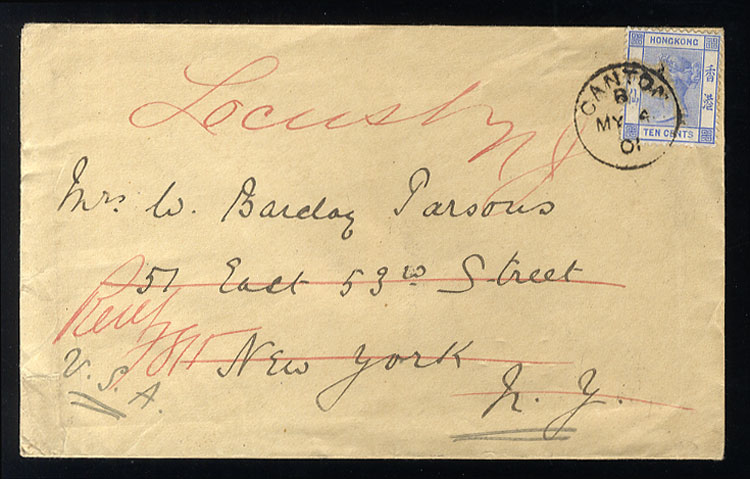 HONGKONG
香港
TEN CENTS
CANTON
B
MY 4
01
Locust
N J
Mrs. W. Barclay Parsons
51 East 53rd Street
New York
N. Y.
U. S. A.